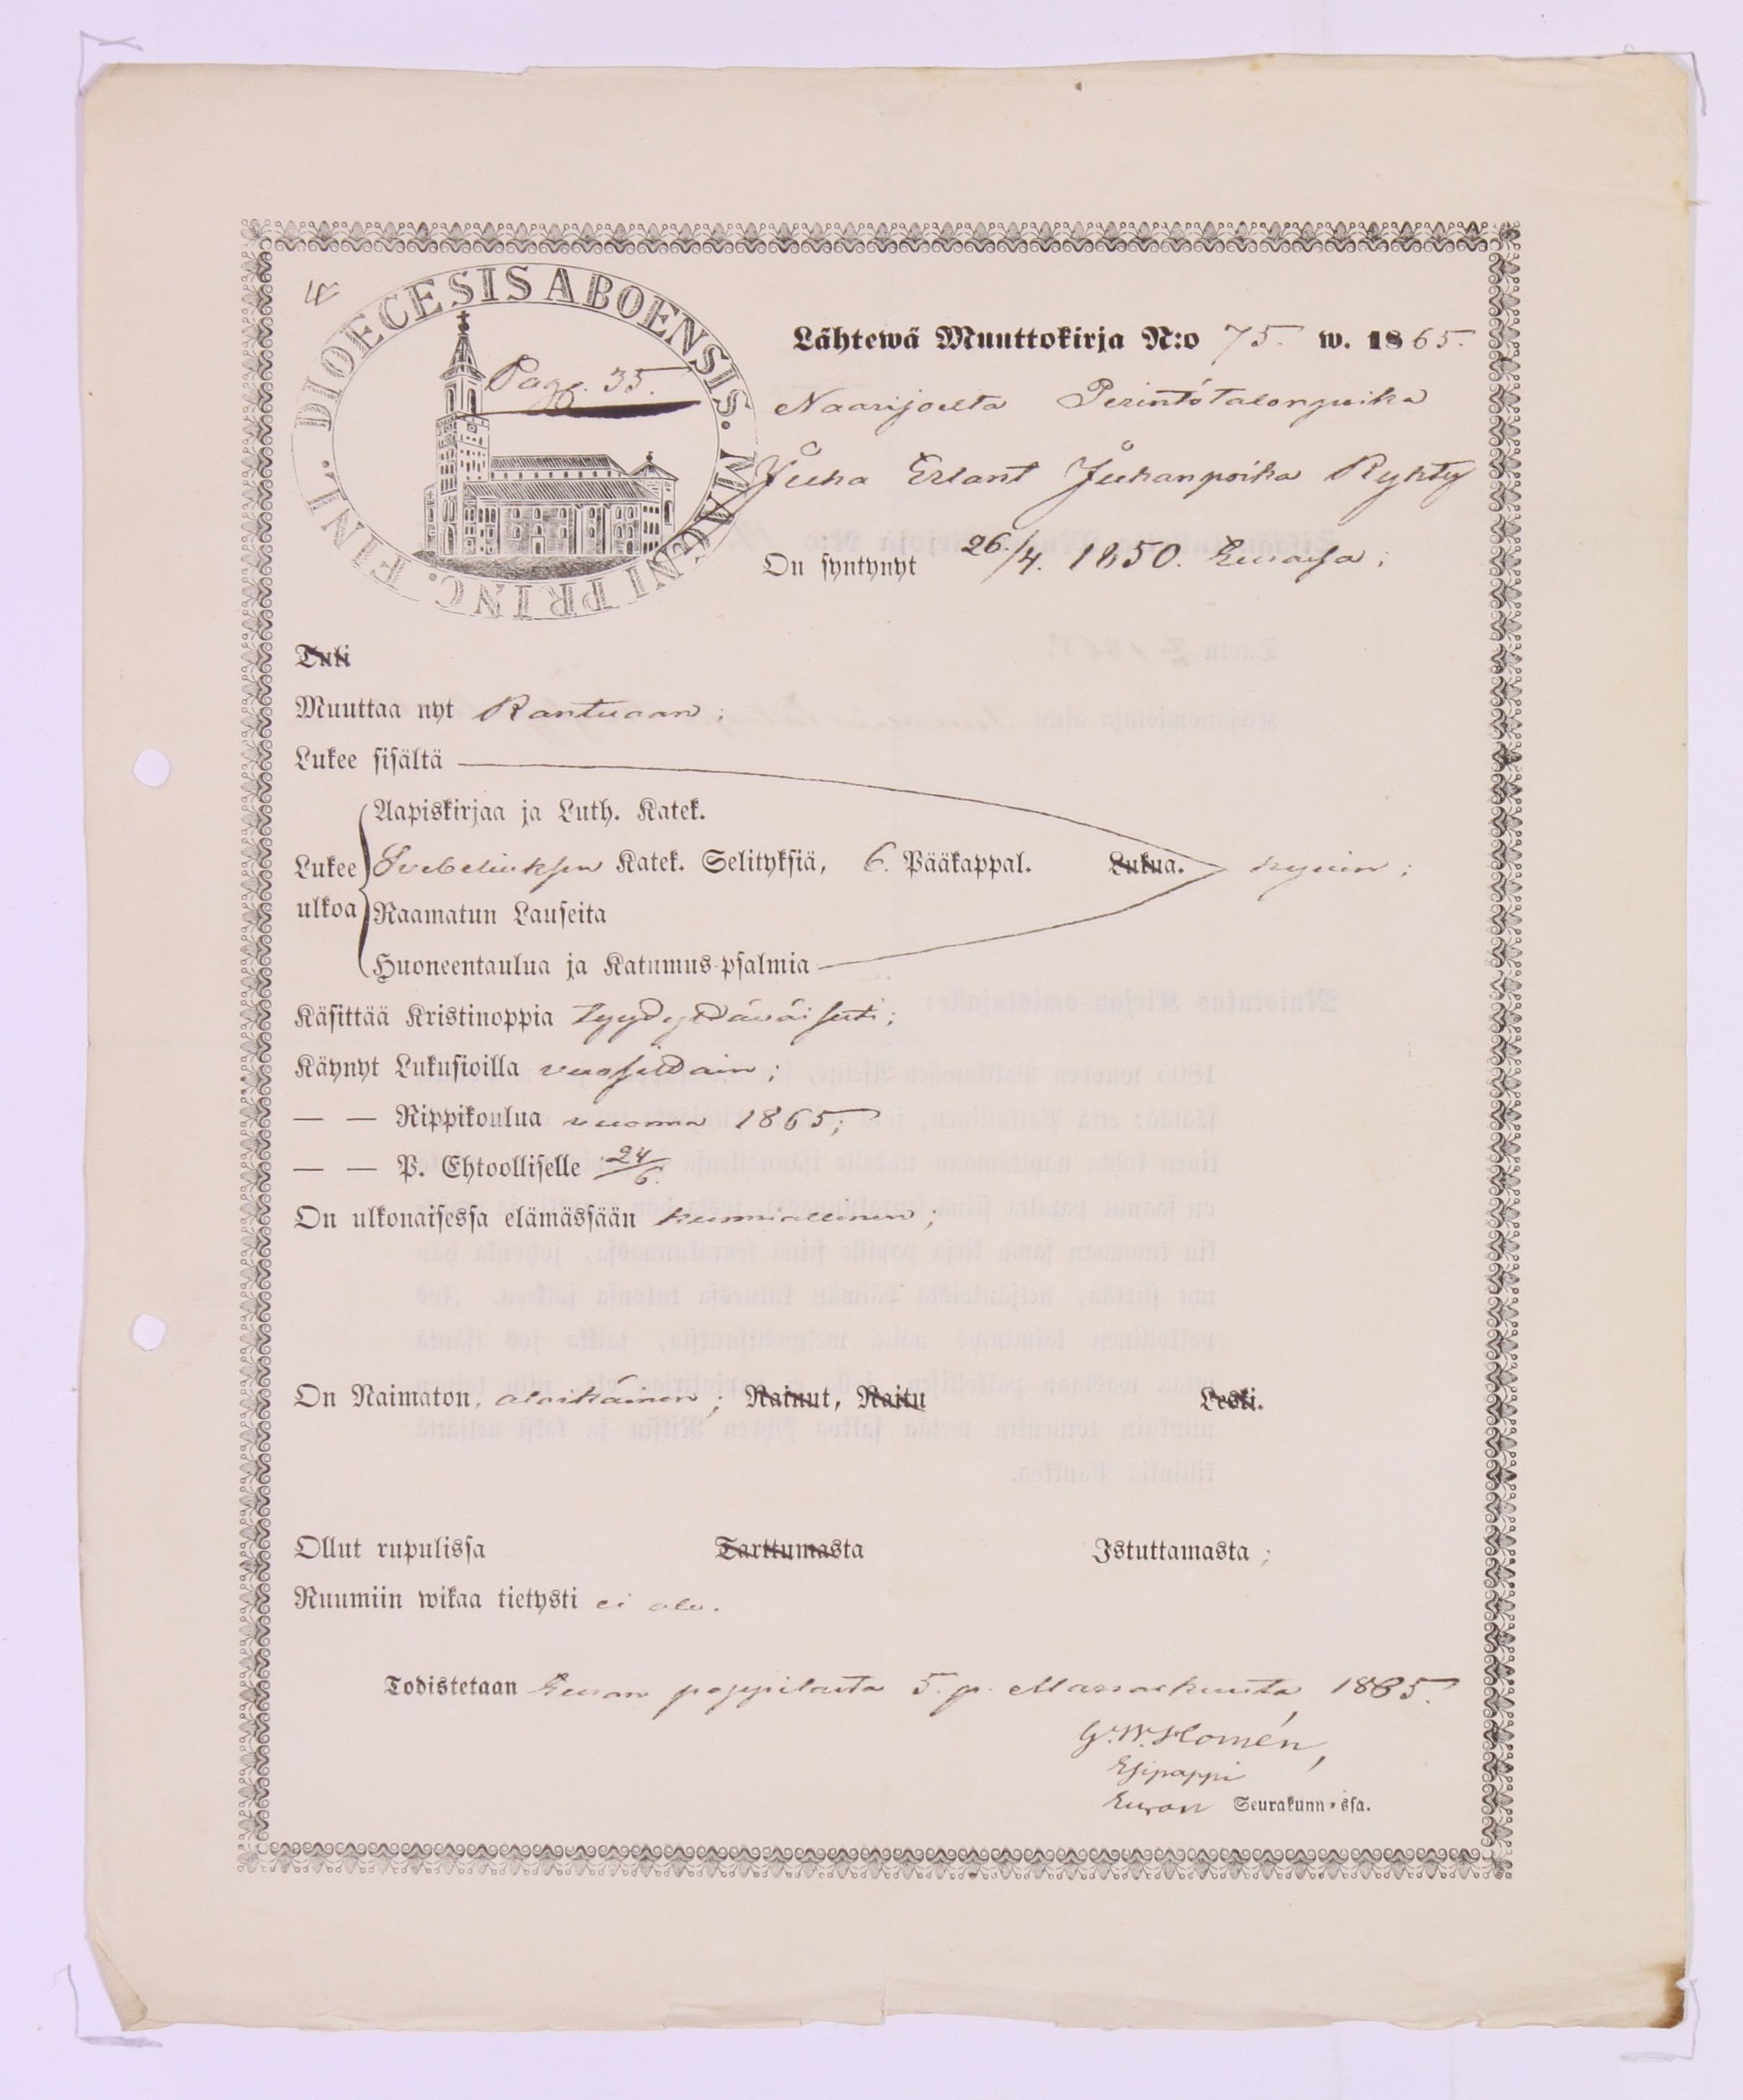 DIOECESIS ABOENSIS. MAGNI PRINC. FINL.
Pag. 35.
Lähtewä Muuttokirja N:o 75. w. 1865.
Naarijoelta Perintötalonpoika
Juha Erlant Juhanpoika Ryhty
On syntynyt 26./4. 1850. Eurassa;
Tuli
Muuttaa nyt Kantuaan;
Lukee sisältä
Aapiskirjaa ja Luth. Katek.
Lukee ulkoa Svebeliuksen Katek. Selityksiä, 6. Pääkappal. Lukua. hyvin;
Raamatun Lauseita
Huoneentaulua ja Katumus-psalmia
Käsittää Kristinoppia tyydyttäväisesti;
Käynyt Lukusioilla vuosittain;
— — Rippikoulua vuonna 1865;
— — P. Ehtoolliselle 24/6.
On ulkonaisessa elämässään kunniallinen;
On Naimaton, alaikäinen; Nainut, Naitu Leski.
Ollut rupulissa Tarttumasta Istuttamasta;
Ruumiin wikaa tietysti ei ole.
Todistetaan Euran pappilasta 5. p. Marraskuuta 1865.
G. W. Homén,
Esipappi
Euran Seurakunnassa.